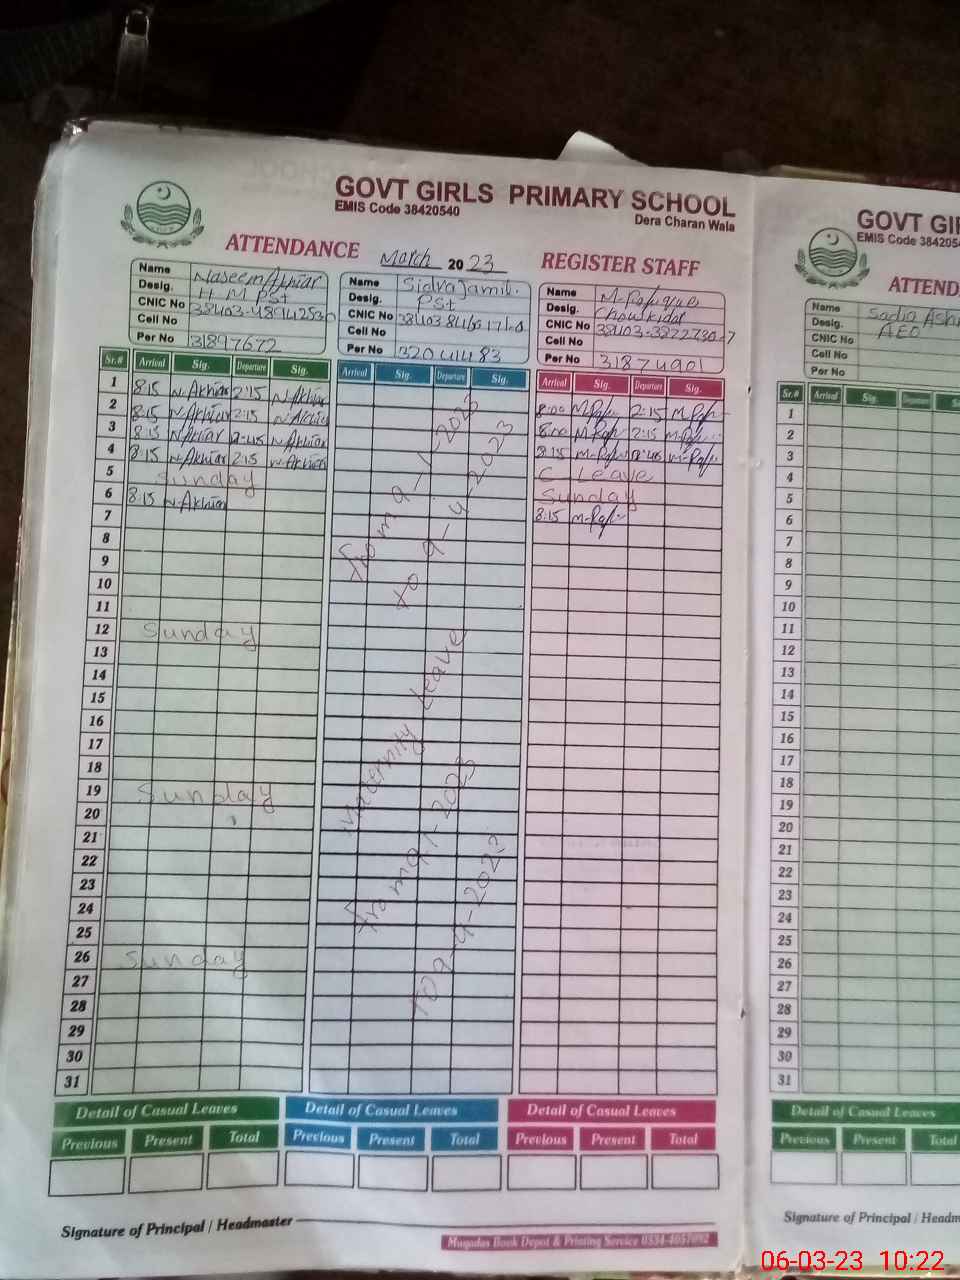 GOVT GIRLS PRIMARY SCHOOL
EMIS Code 38420540
Dera Charan Wala
ATTENDANCE March 2023 REGISTER STAFF
Name Naseem Akhtar
Desig. H.M PST
CNIC No
Cell No
Per No 31897672
Name Sidra Jamil.
Desig. PSt
CNIC No
Cell No
Per No 32041483
Name M-Rafique
Desig. Chowkidar
CNIC No
Cell No
Per No 31874901
Sr.# Arrival Sig. Departure Sig. Arrival Sig. Departure Sig. Arrival Sig. Departure Sig.
1 8:15 N.Akhtar 2:15 N.Akhtar 8:00 M-Rafi 2:15 M-Rafi
2 8:15 N.Akhtar 2:15 N.Akhtar 8:00 M-Rafi 2:15 M-Rafi
3 8:15 N.Akhtar 2:45 N.Akhtar 8:15 M-Rafi M-Rafi
4 8:15 N.Akhtar 2:15 N.Akhtar C-Leave
5 Sunday Sunday
6 8:15 N.Akhtar 8:15 M-Rafi
7
8
9
10
11
12 Sunday
13
14
15
16
17
18
19 Sunday
20
21
22
23
24
25
26 Sunday
27
28
29
30
31
From 9-1-2023
to 9-4-2023
Maternity Leave
From 9-1-2023
to 9-4-2023
Detail of Casual Leaves Detail of Casual Leaves Detail of Casual Leaves
Previous Present Total Previous Present Total Previous Present Total
Signature of Principal / Headmaster
Muqadas Book Depot & Printing Service 0334-4057092
GOVT GI
EMIS Code 384205
ATTEND
Name Sadia Ash
Desig. AEO
CNIC No
Cell No
Per No
Sr.# Arrival Sig. Departure
1
2
3
4
5
6
7
8
9
10
11
12
13
14
15
16
17
18
19
20
21
22
23
24
25
26
27
28
29
30
31
Detail of Casual Leaves
Previous Present Total
Signature of Principal / Headm
06-03-23 10:22